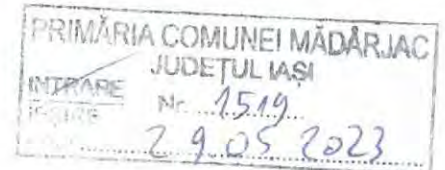 PRIMĂRIA COMUNEI MĂDÂRJAC
JUDEŢUL IAŞI
INTRARE
IEŞIRE Nr. 1519
29.05 2023